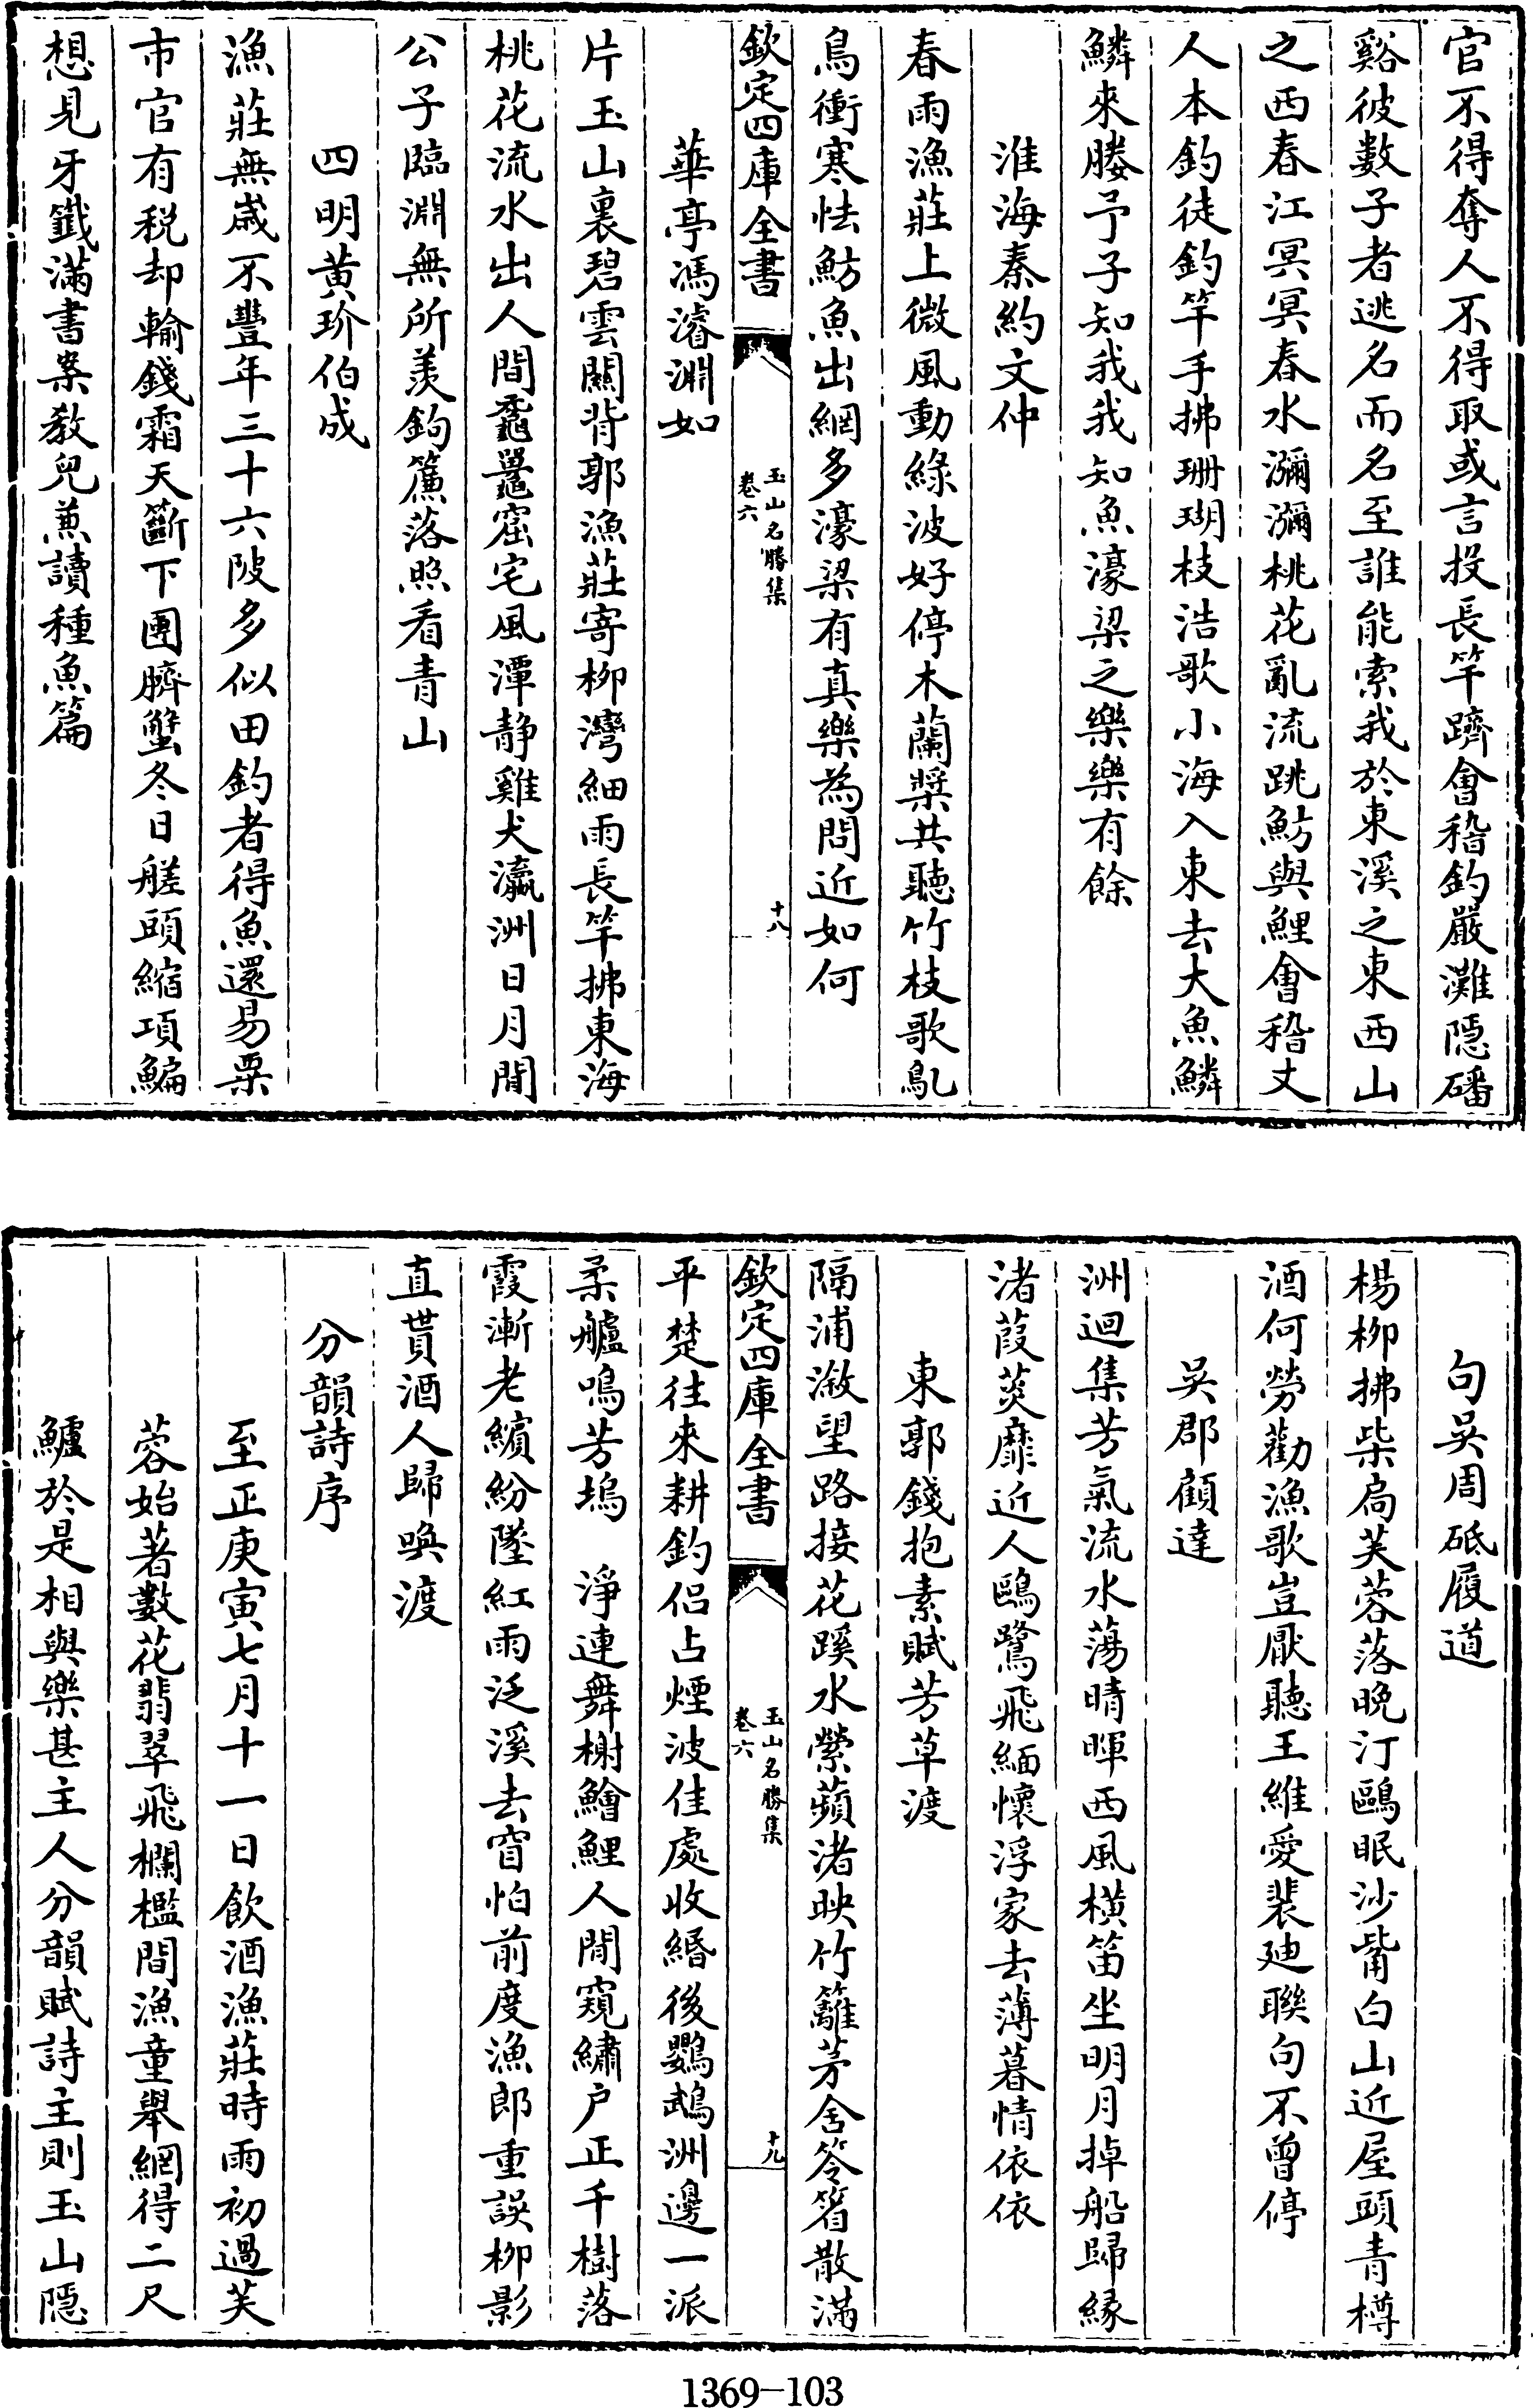 官不得奪人不得取或言投長竿躋會稽釣嚴灘隠磻
谿彼數子者逃名而名至誰能索我於東溪之東西山
之西春江冥冥春水瀰瀰桃花亂流跳魴與鯉會稽丈
人本釣徒釣竿手拂珊瑚枝浩歌小海入東去大魚鱗
鱗來媵予子知我我知魚濠梁之樂樂有餘
淮海秦約文仲
春雨漁莊上微風動綠波好停木蘭槳共聽竹枝歌亂
鳥衝寒怯魴魚出網多濠梁有真樂為問近如何
欽定四庫全書
玉山名勝集
卷六
十八
華亭馮濬淵如
片玉山裏碧雲關背郭漁莊寄柳灣細雨長竿拂東海
桃花流水出人間黿鼉窟宅風潭静雞犬瀛洲日月閒
公子臨淵無所羨鉤簾落照看青山
四明黄玠伯成
漁莊無歳不豐年三十六陂多似田釣者得魚還易粟
市官有税却輸錢霜天籪下團臍蟹冬日艖頭縮項鯿
想見牙籤滿書案教兒兼讀種魚篇
句吳周砥履道
楊柳拂柴扃芙蓉落晚汀鷗眠沙觜白山近屋頭青樽
酒何勞勸漁歌豈厭聽王維愛裴廸聯句不曾停
吳郡顧達
洲迴集芳氣流水蕩晴暉西風橫笛坐明月掉船歸縁
渚葭菼靡近人鷗鷺飛緬懷浮家去薄暮情依依
東郭錢抱素賦芳草渡
隔浦漵望路接花蹊水縈蘋渚映竹籬茅舍笭箵散滿
欽定四庫全書
玉山名勝集
卷六
十九
平楚往來耕釣侶占煙波佳處收緡後鸚鵡洲邊一派
柔艫鳴芳塢　淨連舞榭鱠鯉人閒窺繡户正千樹落
霞漸老繽紛墜紅雨泛溪去窅怕前度漁郎重誤柳影
直貰酒人歸喚渡
分韻詩序
至正庚寅七月十一日飲酒漁莊時雨初過芙
蓉始著數花翡翠飛欄檻間漁童舉網得二尺
鱸於是相與樂甚主人分韻賦詩主則玉山隠
1369-103